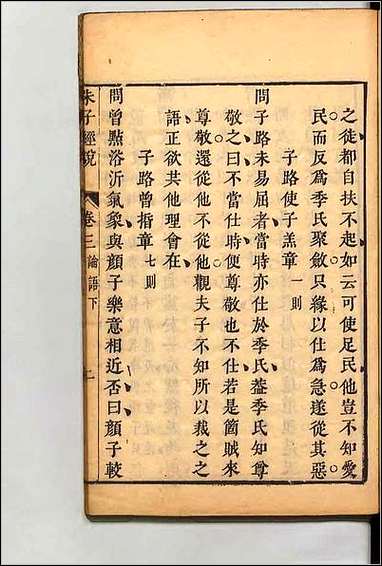 之徒都自扶不起如云可使足民他豈不知愛
民而反為季氏聚斂只緣以仕為急遂從其惡
子路使子羔章 一則
問子路未易屈者當時亦仕於季氏蓋季氏知尊
敬之曰不當仕時便尊敬也不仕若是箇賊來
尊敬還從他不從他觀夫子不知所以裁之之
語正欲共他理會在
子路曾晳章 七則
問曾點浴沂氣象與顏子樂意相近否曰顏子較
朱子經說 卷三 論語下